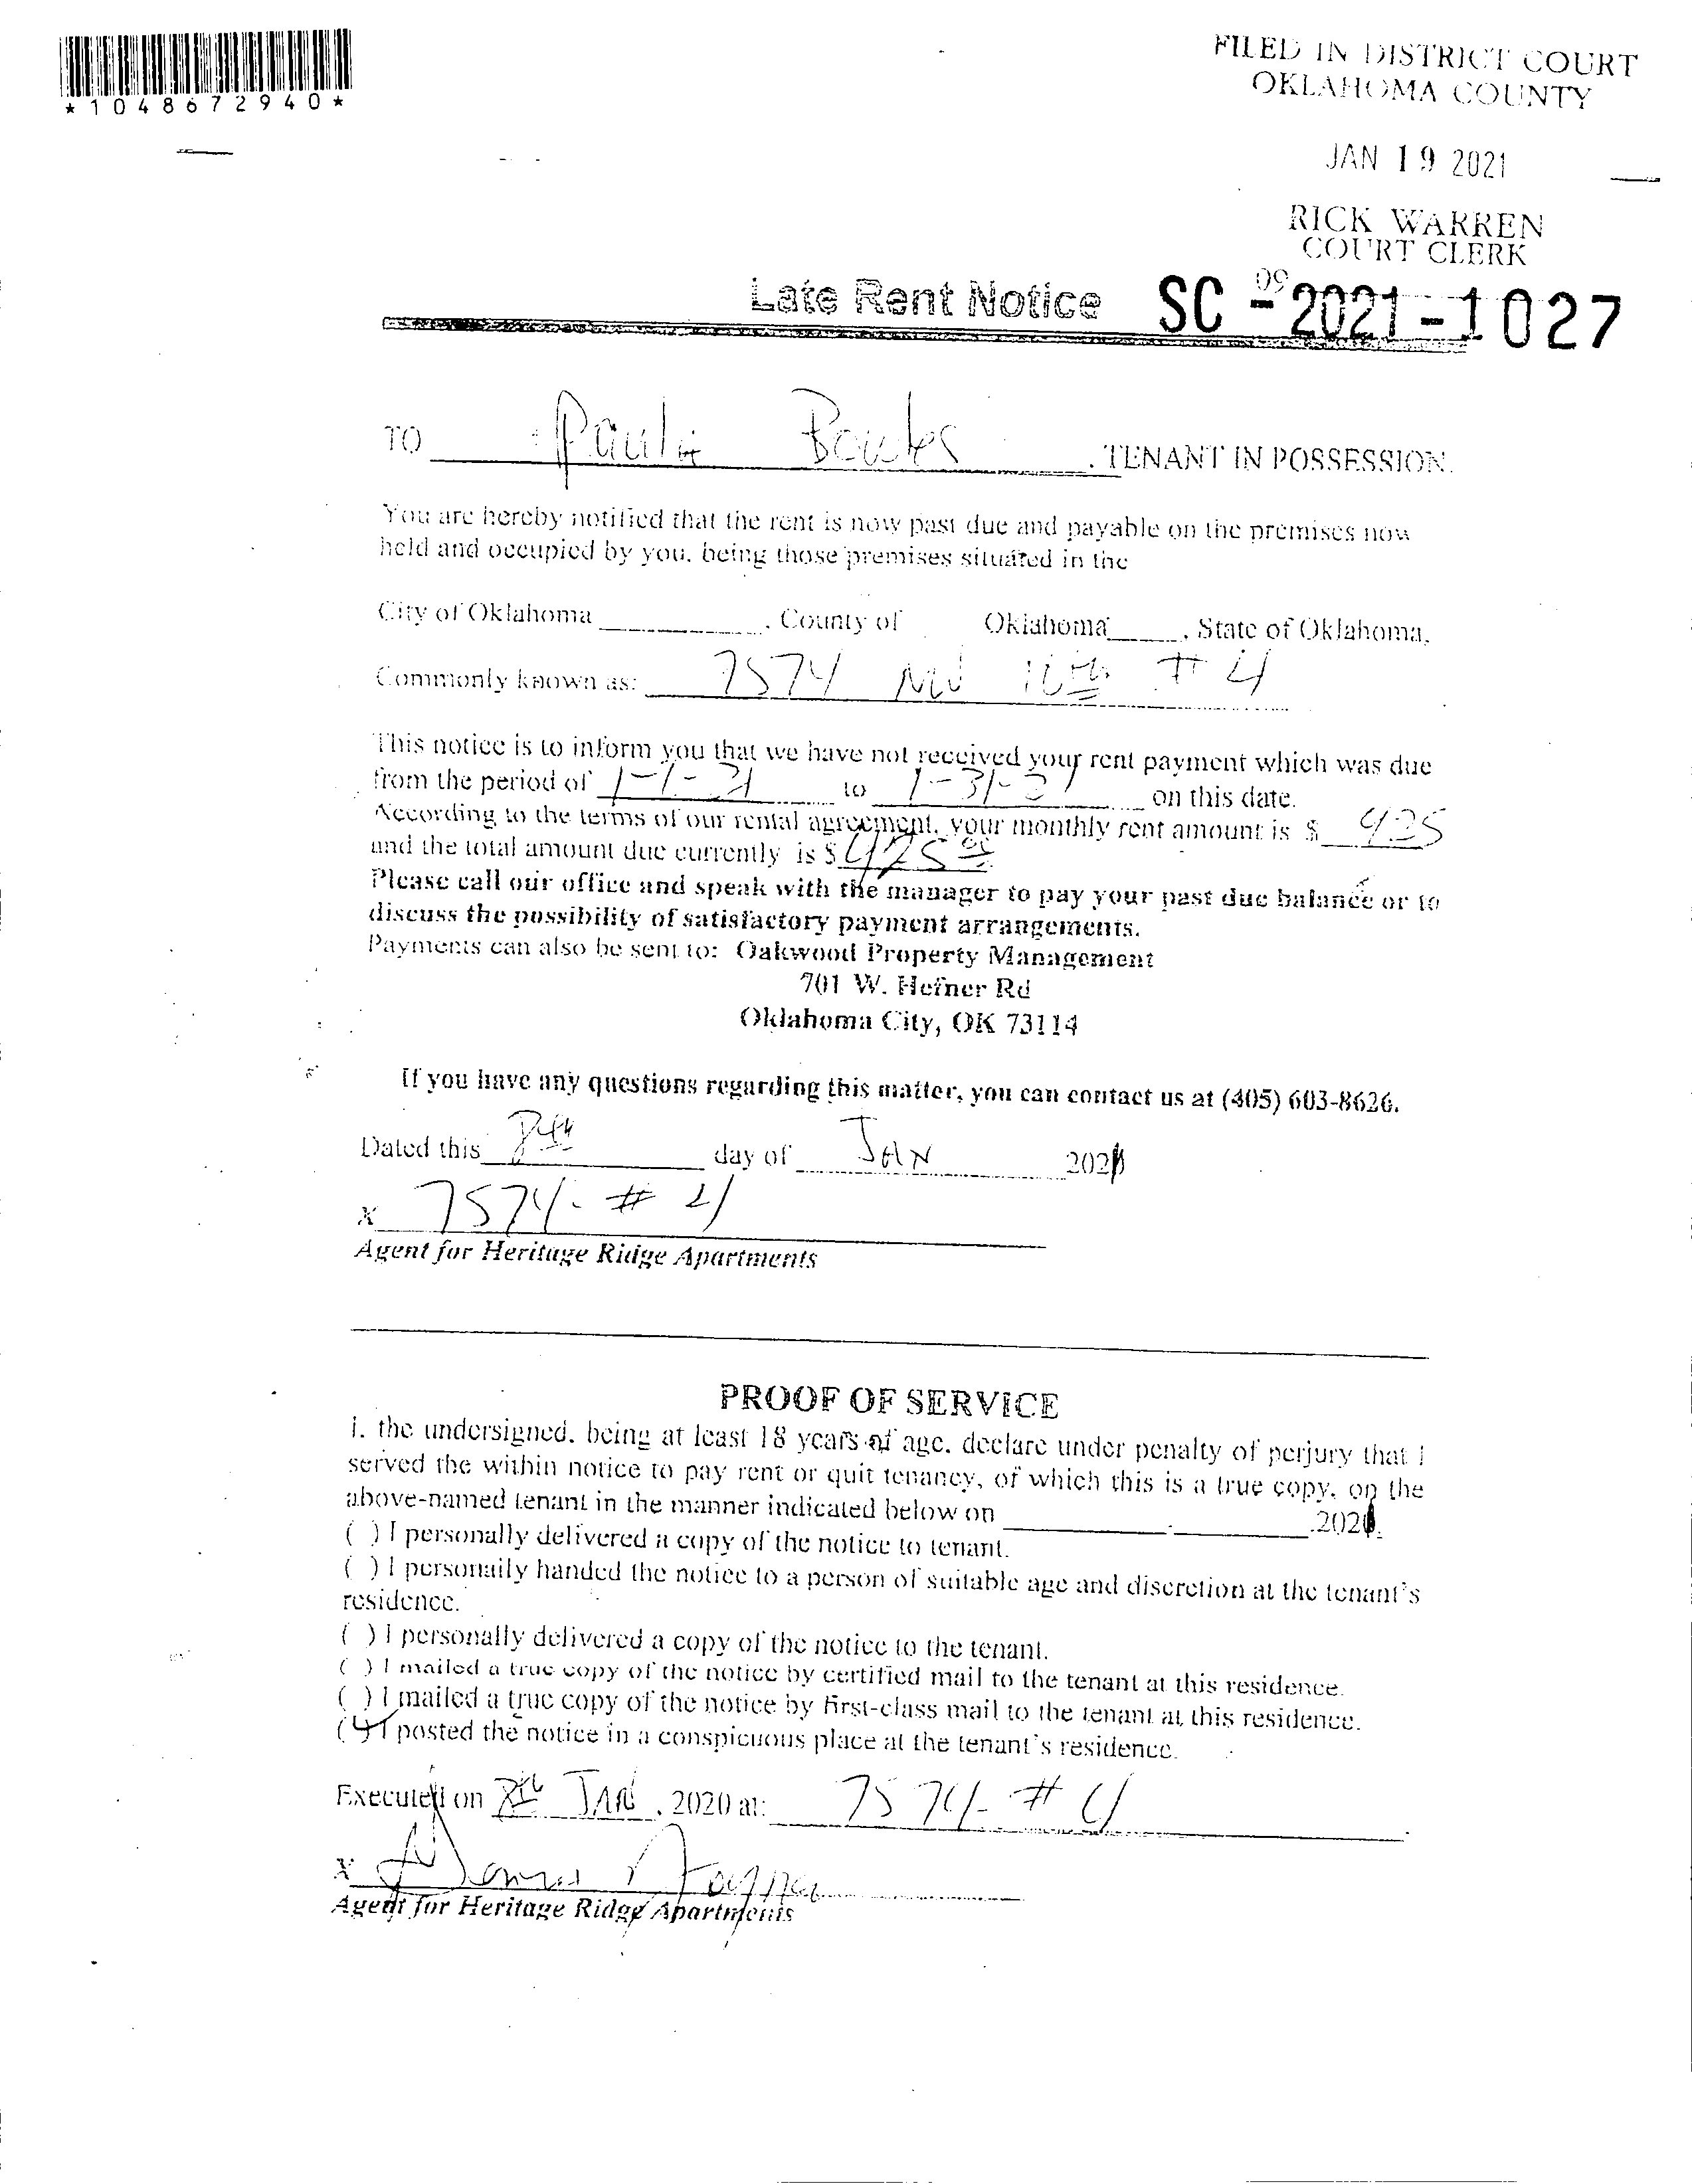 *1048672940*
FILED IN DISTRICT COURT
OKLAHOMA COUNTY
JAN 19 2021
RICK WARREN
COURT CLERK
09
Late Rent Notice SC - 2021 - 1027
TO Paula Bowles, TENANT IN POSSESSION.
You are hereby notified that the rent is now past due and payable on the premises now
held and occupied by you, being those premises situated in the
City of Oklahoma, County of Oklahoma, State of Oklahoma,
Commonly known as: 7574 NW 10th # 4
This notice is to inform you that we have not received your rent payment which was due
from the period of 1-1-21 to 1-31-21 on this date.
According to the terms of our rental agreement, your monthly rent amount is $ 425
and the total amount due currently is $ 425 00
Please call our office and speak with the manager to pay your past due balance or to
discuss the possibility of satisfactory payment arrangements.
Payments can also be sent to: Oakwood Property Management
701 W. Hefner Rd
Oklahoma City, OK 73114
If you have any questions regarding this matter, you can contact us at (405) 603-8626.
Dated this 8th day of JAN 2021
x 7574- # 4
Agent for Heritage Ridge Apartments
PROOF OF SERVICE
I, the undersigned, being at least 18 years of age, declare under penalty of perjury that I
served the within notice to pay rent or quit tenancy, of which this is a true copy, on the
above-named tenant in the manner indicated below on , 2021.
( ) I personally delivered a copy of the notice to tenant.
( ) I personally handed the notice to a person of suitable age and discretion at the tenant's
residence.
( ) I personally delivered a copy of the notice to the tenant.
( ) I mailed a true copy of the notice by certified mail to the tenant at this residence.
( ) I mailed a true copy of the notice by first-class mail to the tenant at this residence.
( ) I posted the notice in a conspicuous place at the tenant's residence.
Executed on 8th JAN, 2020 at: 7574- # 4
x
Agent for Heritage Ridge Apartments